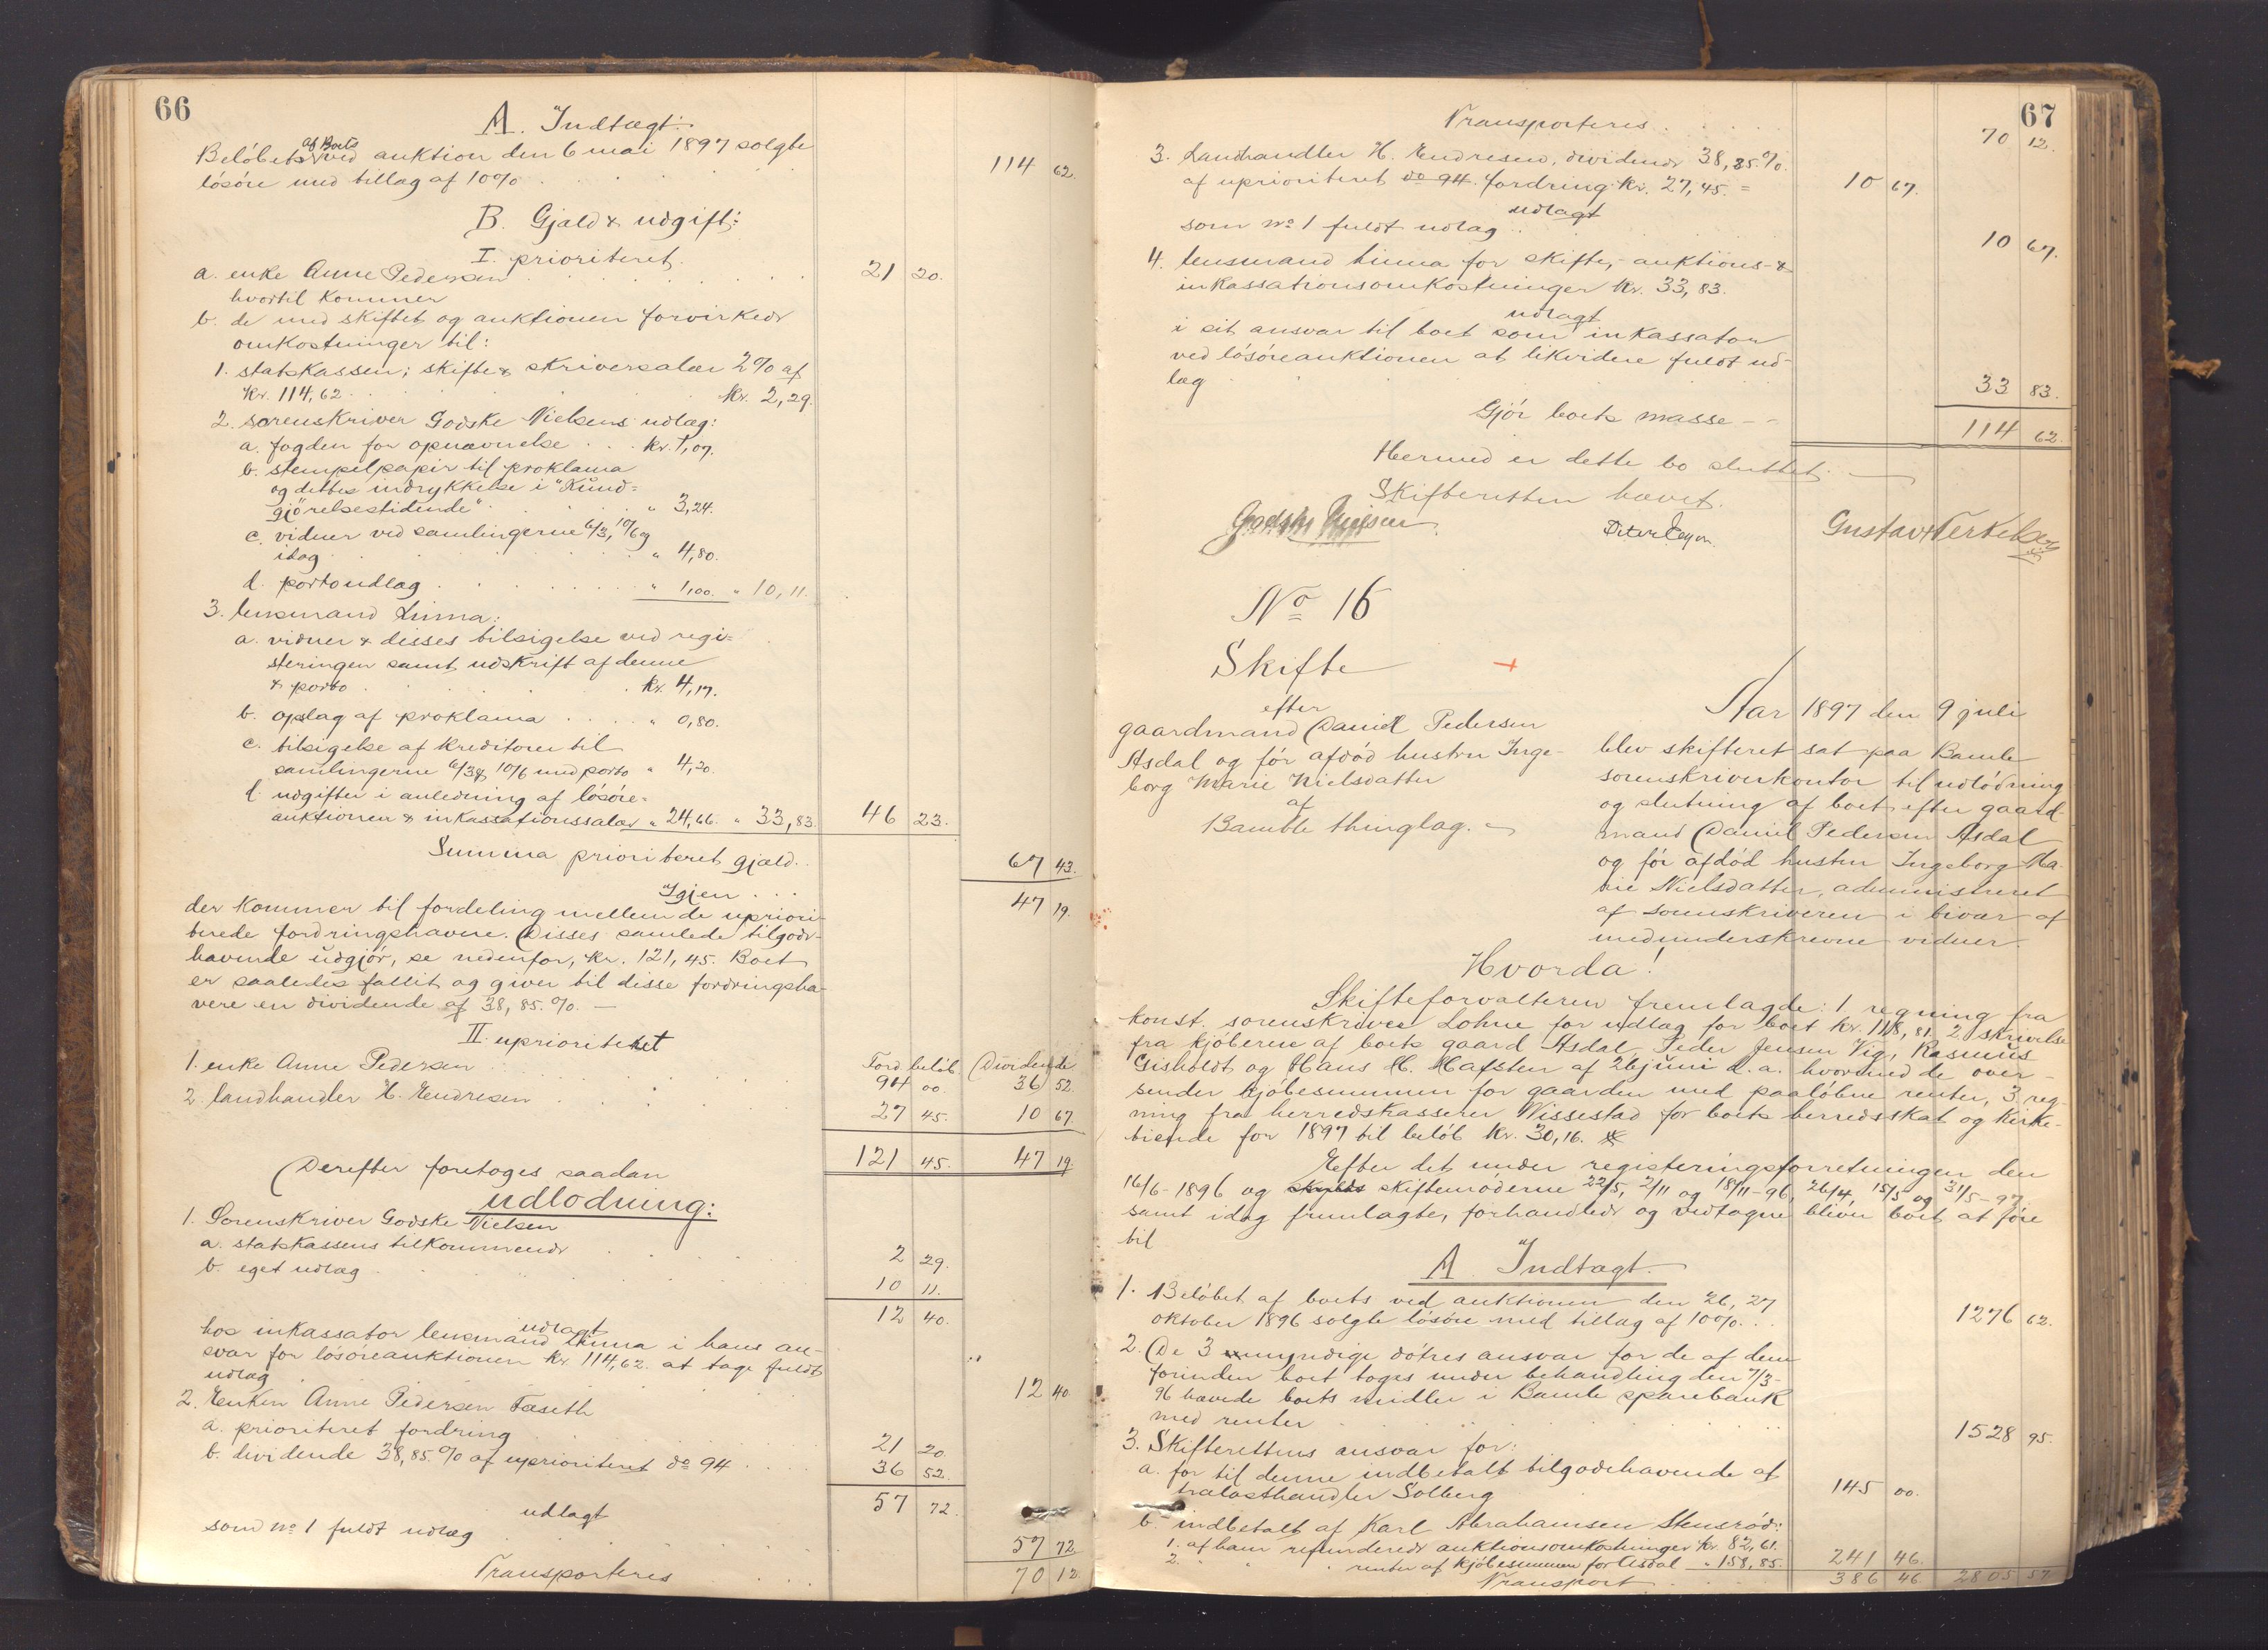 66
A. Indtægt:
Beløbet af Boets ved auktion den 6 mai 1897 solgte
løsøre med tillæg af 10% 114 62.
B. Gjæld & udgift:
I. prioriteret.
a. enke Anne Pedersen 21 20.
hvortil kommer
b. de med skiftet og auktionen forvirkede
omkostninger til:
1. statskassen; skifte & skriversalær 2% af
kr. 114,62 kr. 2,29.
2. sorenskriver Godske Nielsens udlæg:
a. fogden for opnævnelse kr. 1,07.
b. stempelpapir til proklama
og dettes indrykkelse i "Kund=
gjørelsestidende" " 3,24.
c. vidner ved samlingerne 6/3, 10/6 og
idag " 4,80.
d. portoudlæg " 1,00. " 10,11.
3. lensmand Linna:
a. vidner & disses tilsigelse ved regi=
steringen samt udskrift af denne
& porto kr. 4,17.
b. opslag af proklama " 0,80.
c. tilsigelse af kreditorer til
samlingerne 6/3 & 10/6 med porto " 4,20.
d. udgifter i anledning af løsøre=
auktionen & inkassationssalær " 24,66. " 33,83. 46 23.
Summa prioriteret gjæld. 67 43.
Igjen 47 19.
der kommer til fordeling mellem de upriori-
terede fordringshavere. Disses samlede tilgode-
havende udgjør, se nedenfor, kr. 121,45. Boet
er saaledes fallit og giver til disse fordringsha-
vere en dividende af 38,85.%. —
II. uprioriteret
Ford. beløb. Dividende
1. enke Anne Pedersen 94 00. 36 52.
2. landhandler H. Endresen 27 45. 10 67.
121 45. 47 19.
Derefter foretoges saadan
udlodning:
1. Sorenskriver Godske Nielsen
a. statskassens tilkommende 2 29.
b. eget udlæg 10 11.
12 40.
udlagt
hos inkassator lensmand Linna i hans an-
svar for løsøreauktionen kr. 114,62. at tage fuldt
udlæg 12 40.
2. Enken Anne Pedersen Fæseth
a. prioriteret fordring 21 20.
b. dividende 38,85.% af uprioriteret do 94 36 52.
57 72.
udlagt
som no 1 fuldt udlæg 57 72.
Transporteres 70 12.
67
Transporteres 70 12.
3. Landhandler H. Endresen, dividende 38,85.%.
af uprioriteret do 94. fordring kr. 27,45. = 10 67.
udlagt
som no 1 fuldt udlæg 10 67.
4. lensmand Linna for skifte,- auktions- &
inkassationsomkostninger kr. 33,83.
udlagt
i sit ansvar til boet som inkassator
ved løsøreauktionen at likvidere fuldt ud-
læg 33 83.
Gjør boets masse - - 114 62.
Hermed er dette bo sluttet. —
Skifteretten hævet.
Godske Nielsen
Gustav Terkelsen
No 16
Skifte
efter
gaardmand Daniel Pedersen
Asdal og før afdød hustru Inge-
borg Marie Nielsdatter
af
Bamble thinglag. —
Aar 1897 den 9 juli
blev skifteret sat paa Bamle
sorenskriverkontor til udlødning
og slutning af boet efter gaard-
mand Daniel Pedersen Asdal
og før afdød hustru Ingeborg Ma-
rie Nielsdatter, administreret
af sorenskriveren i bivær af
medunderskrevne vidner.
Hvorda!
Skifteforvalteren fremlagde: 1 regning fra
konst. sorenskriver Lohne for udlæg for boet kr. 118,81. 2 skrivelse
fra kjøberne af boets gaard Asdal, Peder Jensen Vig, Rasmus
Gisholdt og Hans H. Hafsten af 26 juni d.a. hvormed de over-
sender kjøbesummen for gaarden med paaløbne renter, 3 reg-
ning fra herredskasserer Wissestad for boets herredsskat og kirke-
tiende for 1897 til beløb kr. 30,16.
Efter det under registeringsforretningen den
16/6-1896 og skiftemøderne 22/5, 2/11 og 18/11-96, 26/4, 15/5 og 31/5-97
samt idag fremlagte, forhandlede og vedtagne bliver boet at føre
til
A Indtægt.
1. Beløbet af boets ved auktionen den 26, 27
oktober 1896 solgte løsøre med tillæg af 10% 1276 62.
2. De 3 umyndige døtres ansvar for de af dem
forinden boet toges under behandling den 7/3-
96 hævede boets midler i Bamle sparebank
med renter 1528 95.
3. Skifterettens ansvar for:
a. for til denne indbetalt tilgodehavende af
trælasthandler Solberg 145 00.
b. indbetalt af Karl Abrahamsen Stensrød:
1. af ham refunderede auktionsomkostninger kr. 82,61.
2. " " renter af kjøbesummen for Asdal " 158,85. 241 46.
Transport 386 46. 2805 57.